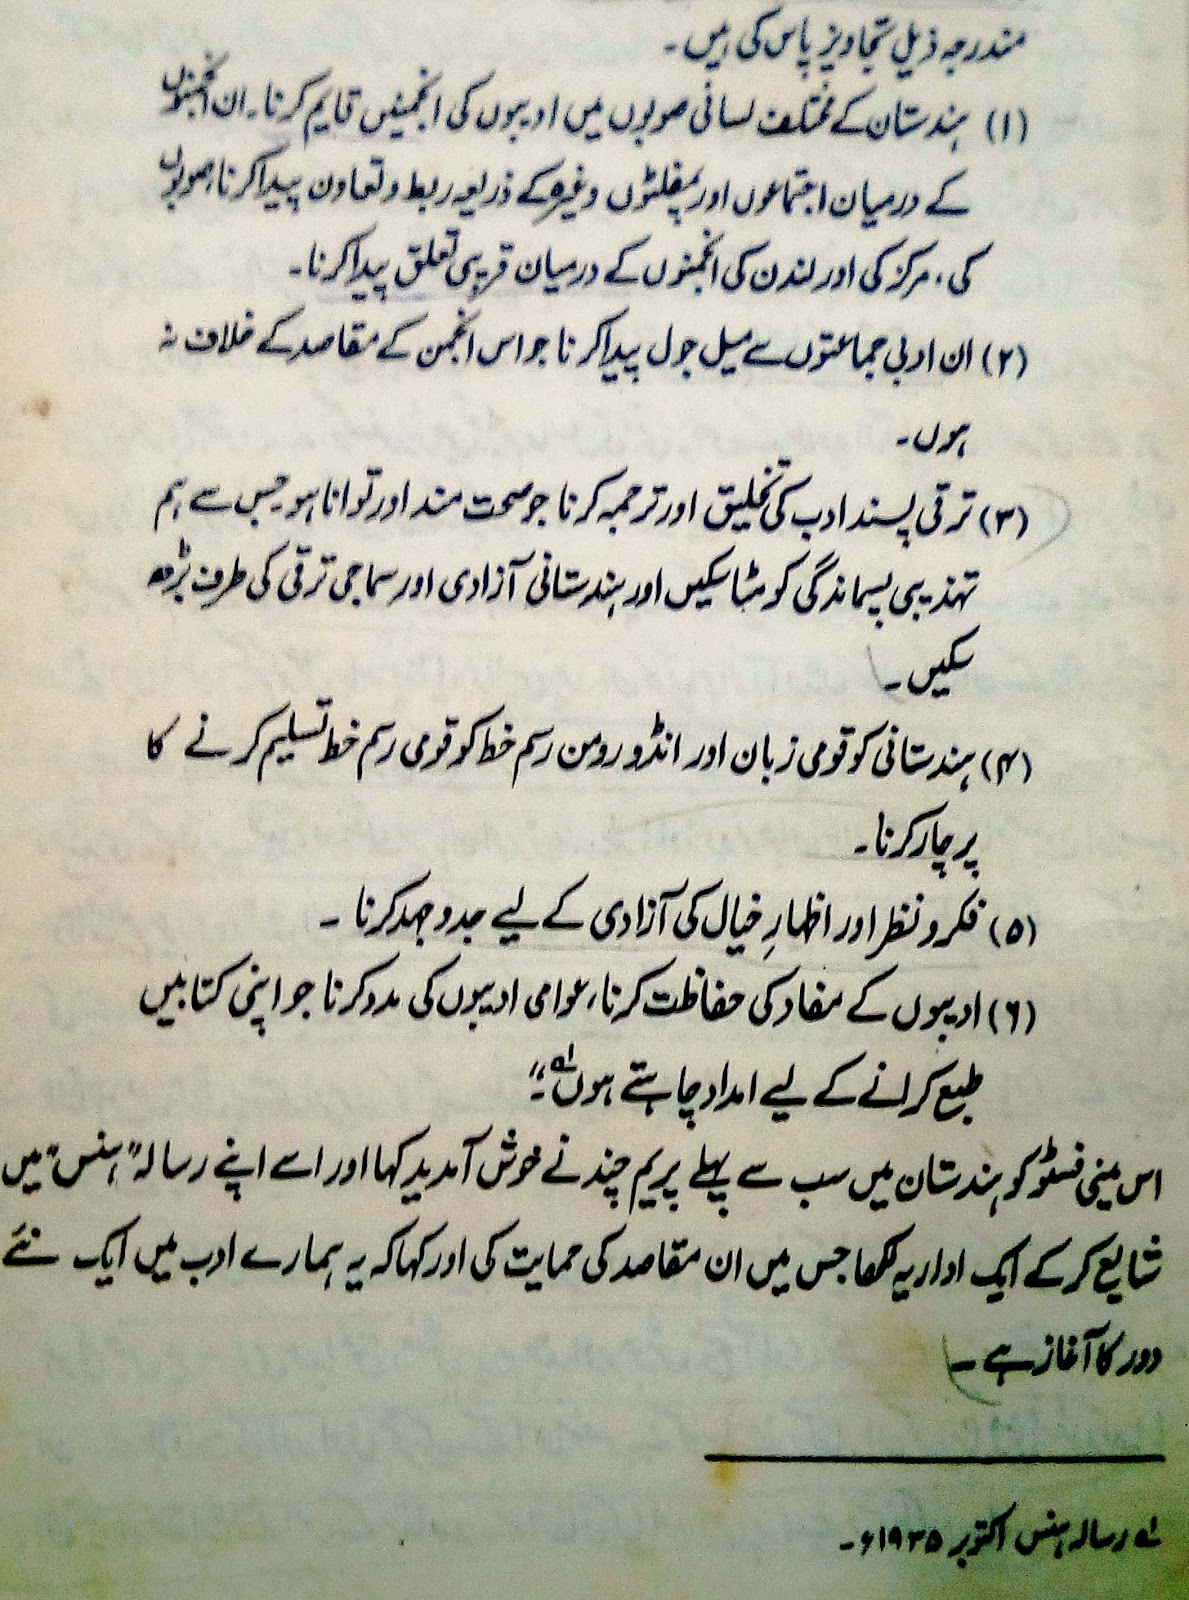 مندرجہ ذیل تجاویز پاس کی ہیں۔
(۱) ہندستان کے مختلف لسانی صوبوں میں ادیبوں کی انجمنیں قایم کرنا۔ ان انجمنوں
کے درمیان اجتماعوں اور پمفلٹوں وغیرہ کے ذریعہ ربط و تعاون پیدا کرنا، صوبوں
کی، مرکز کی اور لندن کی انجمنوں کے درمیان قریبی تعلق پیدا کرنا۔
(۲) ان ادبی جماعتوں سے میل جول پیدا کرنا جو اس انجمن کے مقاصد کے خلاف نہ
ہوں۔
(۳) ترقی پسند ادب کی تخلیق اور ترجمہ کرنا جو صحت مند اور توانا ہو۔ جس سے ہم
تہذیبی پسماندگی کو مٹا سکیں اور ہندستانی آزادی اور سماجی ترقی کی طرف بڑھ
سکیں۔
(۴) ہندستانی کو قومی زبان اور انڈو رومن رسم خط کو قومی رسم خط تسلیم کرنے کا
پرچار کرنا۔
(۵) فکر و نظر اور اظہارِ خیال کی آزادی کے لیے جدوجہد کرنا ۔
(۶) ادیبوں کے مفاد کی حفاظت کرنا، عوامی ادیبوں کی مدد کرنا جو اپنی کتابیں
طبع کرانے کے لیے امداد چاہتے ہوں۔"؂۱
اس مینی فسٹو کو ہندستان میں سب سے پہلے پریم چند نے خوش آمدید کہا اور اسے اپنے رسالہ "ہنس" میں
شایع کر کے ایک اداریہ لکھا جس میں ان مقاصد کی حمایت کی اور کہا کہ یہ ہمارے ادب میں ایک نئے
دور کا آغاز ہے ۔
؂۱ رسالہ ہنس اکتوبر ۱۹۳۵ء۔